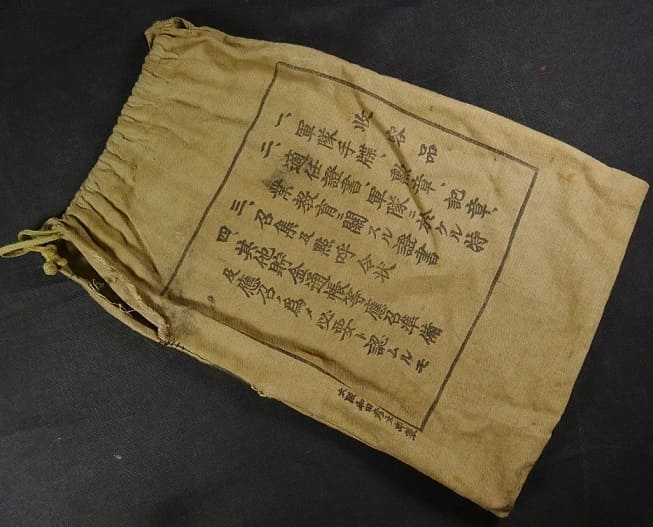 收容品
一、軍隊手牒、勲章、記章、
二、適任證書軍隊ニ於ケル特
業教育ニ關スル證書
三、召集及點呼令状
四、其他貯金通帳等應召準備
及應召ノ為メ必要ト認ムルモ
大阪